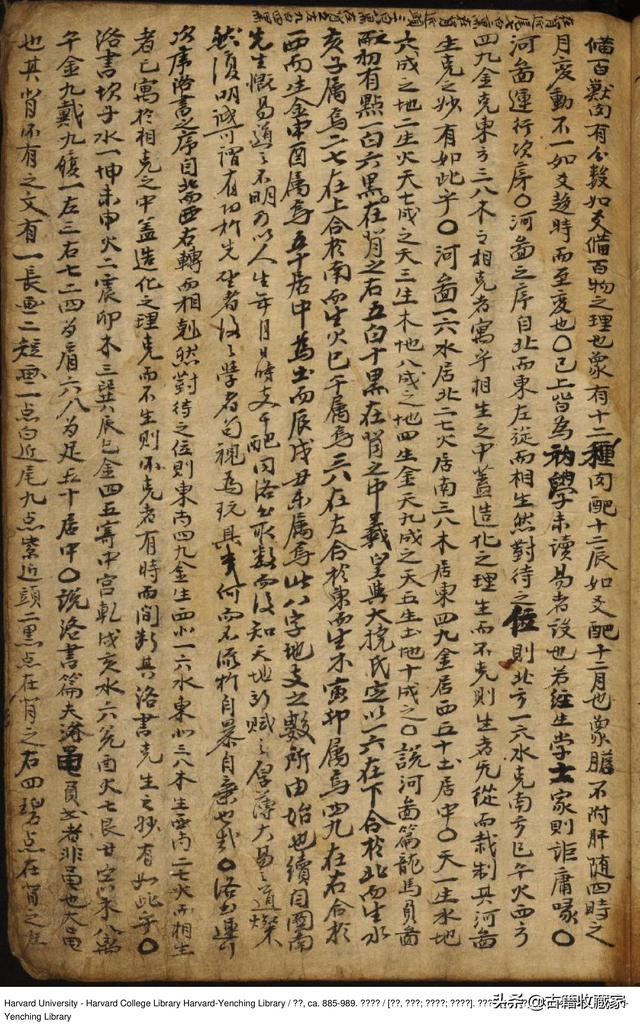 備百獸肉有分数如爻備百物之理也象有十二種肉配十二辰如爻配十二月也象膽不附肝随四時之
月変動不一如爻趋時而至変也〇已上皆為初學未讀易者設也若经生学士家則詎庸喙〇
河畜運行次序〇河畜之序自北而東左從而相生然對待之位則北方一六水克南方巳午火西方
四九金克東方三八木之相克者寓乎相生之中蓋造化之理生而不克則生者无從而裁制其河畜
生克之妙有如此乎〇河畜一六水居北二七火居南三八木居東四九金居西五十土居中〇天一生水地
六成之地二生火天七成之天三生木地八成之地四生金天九成之天五生土地十成之〇說河畜篇龍馬員畜
初有點一白六黑在背之右五白十黑在背之中羲皇與大撓氏定以一六在下合於北而生水
亥子属焉二七在上合於南而生火巳午属焉三八在左合於東而生木寅卯属焉四九在右合於
西而生金申酉属焉五十居中為土而辰戌丑未属焉此八字地支之數所由始也
先生慨易道之不明乃以人生年月日時支干配河洛数而後知天地所賦之厚薄大易之道燦
然復明誠可謂有功於先聖者後之學者苟視為玩具何而不流於自暴自棄也哉〇洛書運行
次序洛書之序自北而西右轉而相剋然對待之位則東南四九金生西北一六水東北三八木生西南二七火而相生
者已寓於相克之中蓋造化之理克而不生則不克者有時而間断其洛書克生之妙有如此乎〇
洛書坎子水一坤未申火二震卯木三巽辰巳金四五寄中宫乾戌亥水六兑酉火七艮丑寅木八离
午金九戴九履一左三右七二四為肩六八為足五十居中〇說洛書篇夫洛黽員者非黽也大黽
也其背所有之文有一長画二短画一点白近尾九点紫近頭二黑点在背之右四碧点在背之左
Harvard University - Harvard College Library Harvard-Yenching Library / ??, ca. 885-989. ???? / [??, ???; ????; ????]. ???
Yenching Library
头条@古籍收藏家